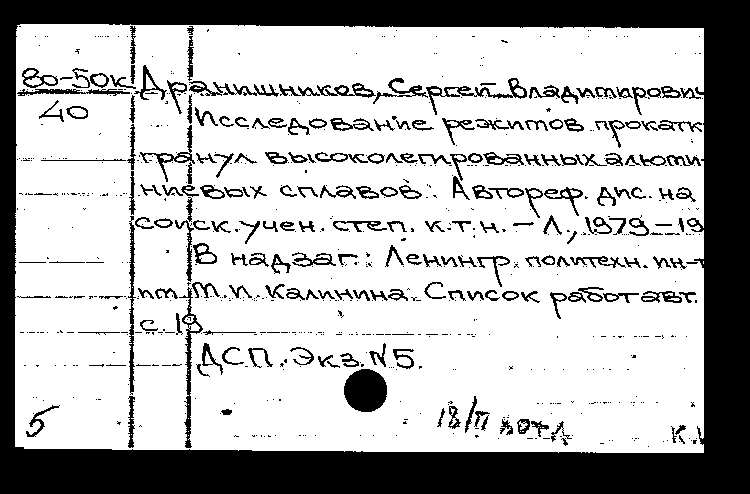 80-50к Дранишников, Сергей Владимирович
40
Исследование режимов прокатк
гранул высоколегированных алюми-
ниевых сплавов: Автореф. дис. на
соиск. учен. степ. к.т.н. - Л., 1979 - 19
В надзаг.: Ленингр. политехн. ин-т
им. М.И. Калинина. Список работ авт.
с. 19.
ДСП. Экз. N5.
5 18/II К.